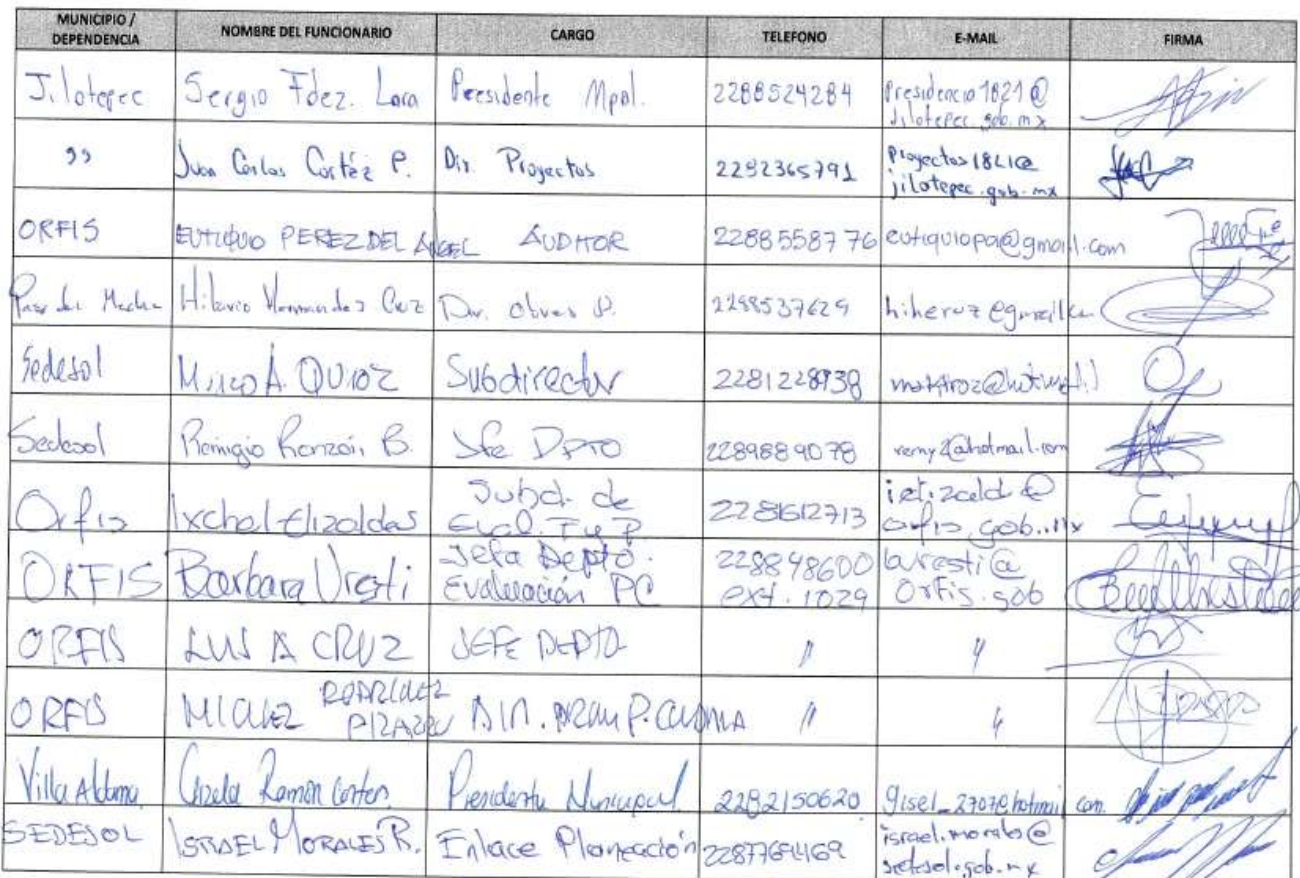 MUNICIPIO / DEPENDENCIA NOMBRE DEL FUNCIONARIO CARGO TELEFONO E-MAIL FIRMA
Jilotepec Sergio Fdez. Lara Presidente Mpal. 2288524284 Presidencia1821@
jilotepec.gob.mx
" Juan Carlos Cortéz P. Dir. Proyectos 2282365791 Proyectos1821@
jilotepec.gob.mx
ORFIS EUTIQUIO PEREZ DEL ANGEL AUDITOR 2288558776 eutiquiopa@gmail.com
Paso del Macho Hilario Hernandez Cruz Dir. Obras P. 2288537629
Sedesol Subdirector
Sedesol Remigio Ronzón B. Jfe DPTO 2289889078 remy2@hotmail.com
Orfis Ixchel Elizaldas Subd. de
Eval. F y P 2281612713
orfis.gob.mx
ORFIS Barbara Uresti Jefa Depto.
Evaluación PC 228848600
ext. 1029 buresti@
Orfis.gob
ORFIS LUIS A CRUZ JEFE DEPTO " "
ORFIS RODRIGUEZ
PIZARRO " "
Villa Aldama Gisela Ramón Presidenta Municipal 2282150620 gisel_2707@hotmail com.
SEDESOL ISRAEL MORALES R. Enlace Planeación israel.morales@
sedesol.gob.mx